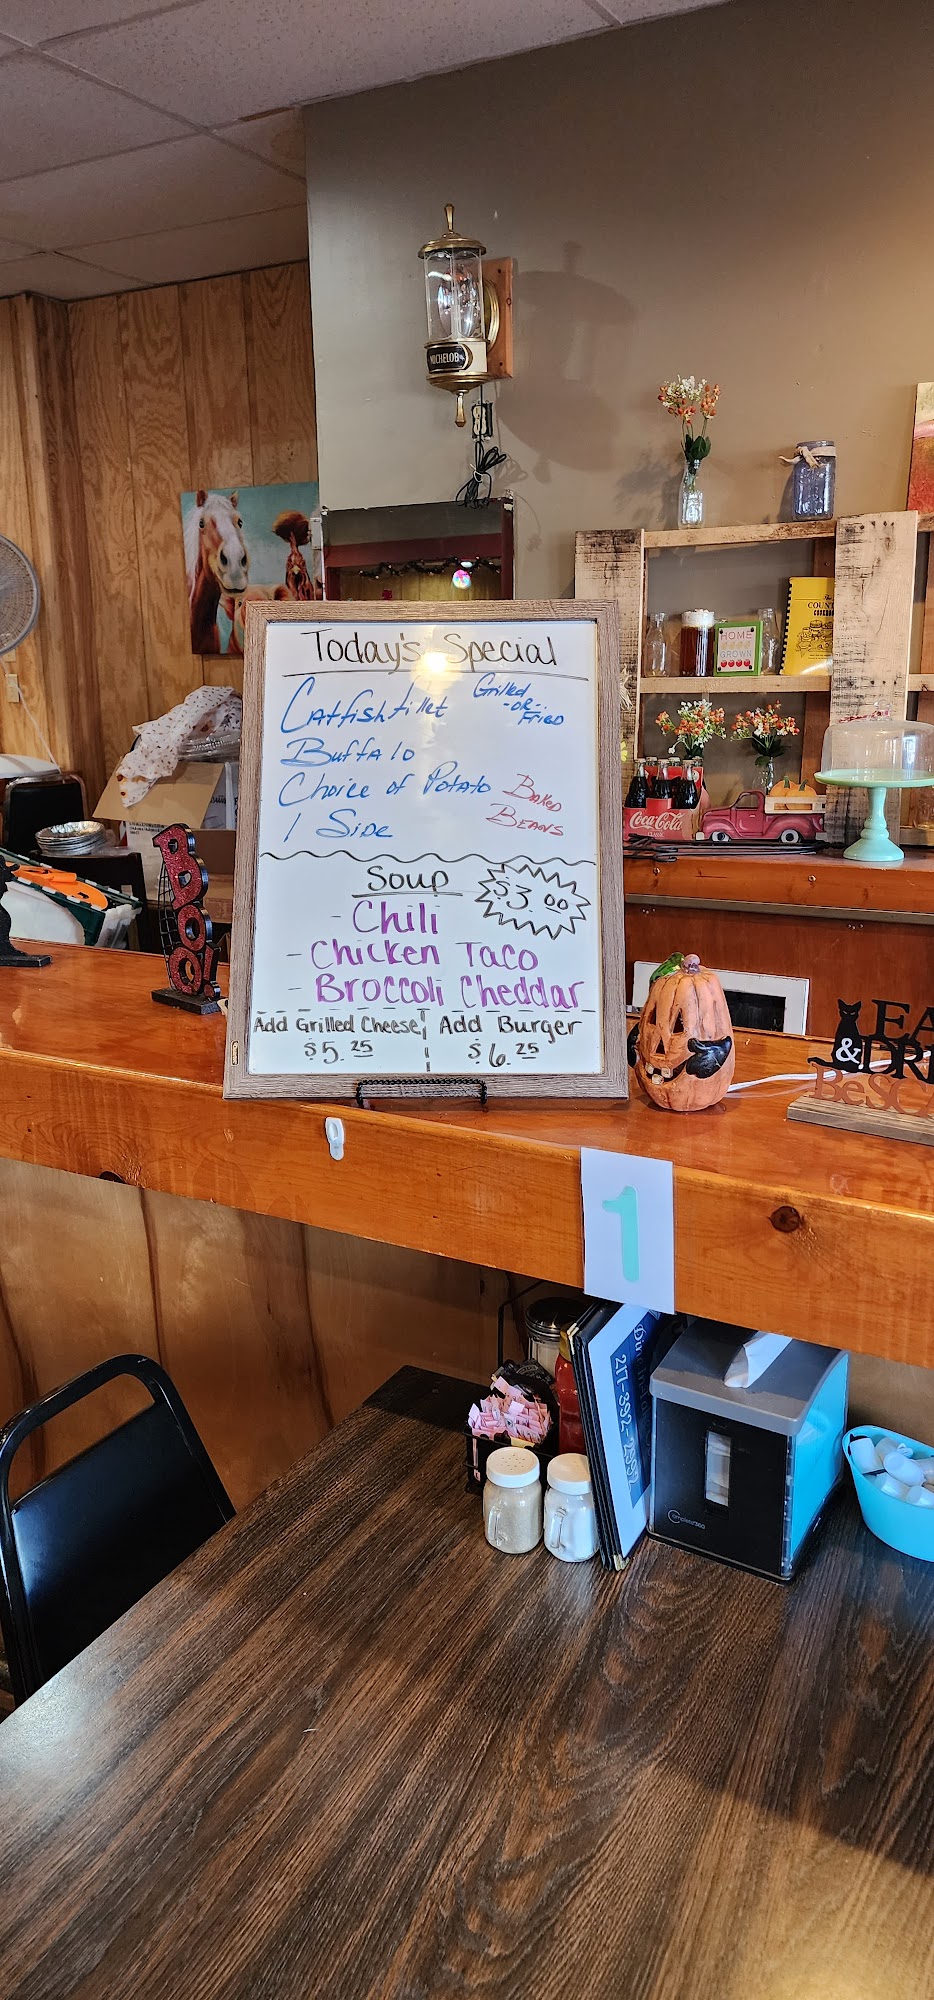 MICHELOB
Today's Special
Catfish fillet Grilled
-OR-
Fried
Buffalo
Choice of Potato Baked
1 Side Beans
Soup $3.00
- Chili
- Chicken Taco
- Broccoli Cheddar
Add Grilled Cheese Add Burger
$5.25 $6.25
BOO!
HOME
GROWN
COUNT
COOKBOOK
Coca-Cola
CLASSIC
EA
& DRI
BeSCA
1
217-892-